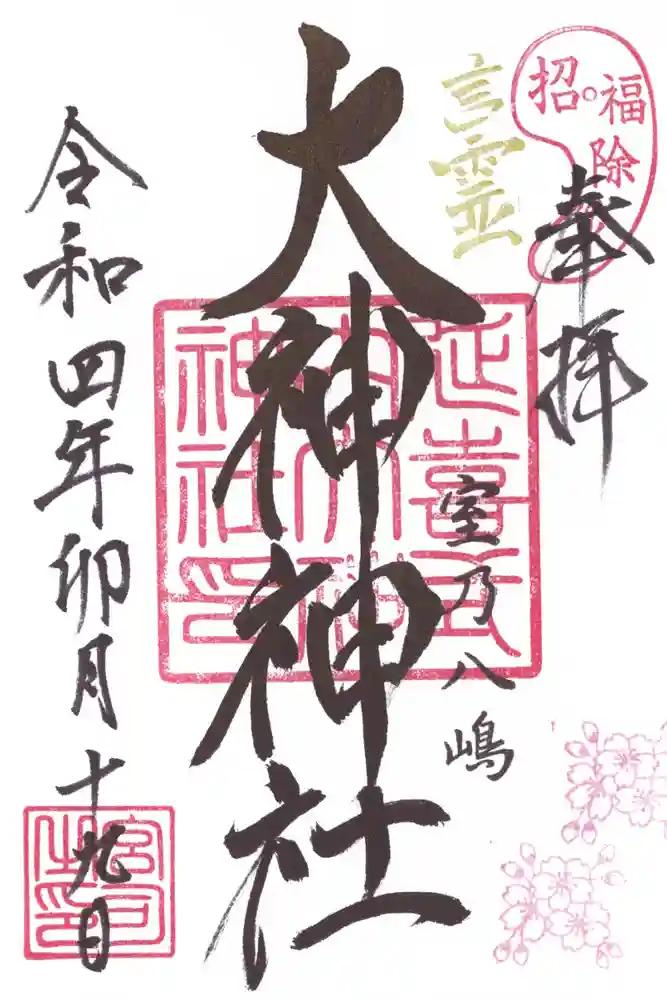 奉拝
招福除
言霊
室乃八嶋
大神神社
延喜式内大神神社印
令和四年卯月十九日
宮司之印